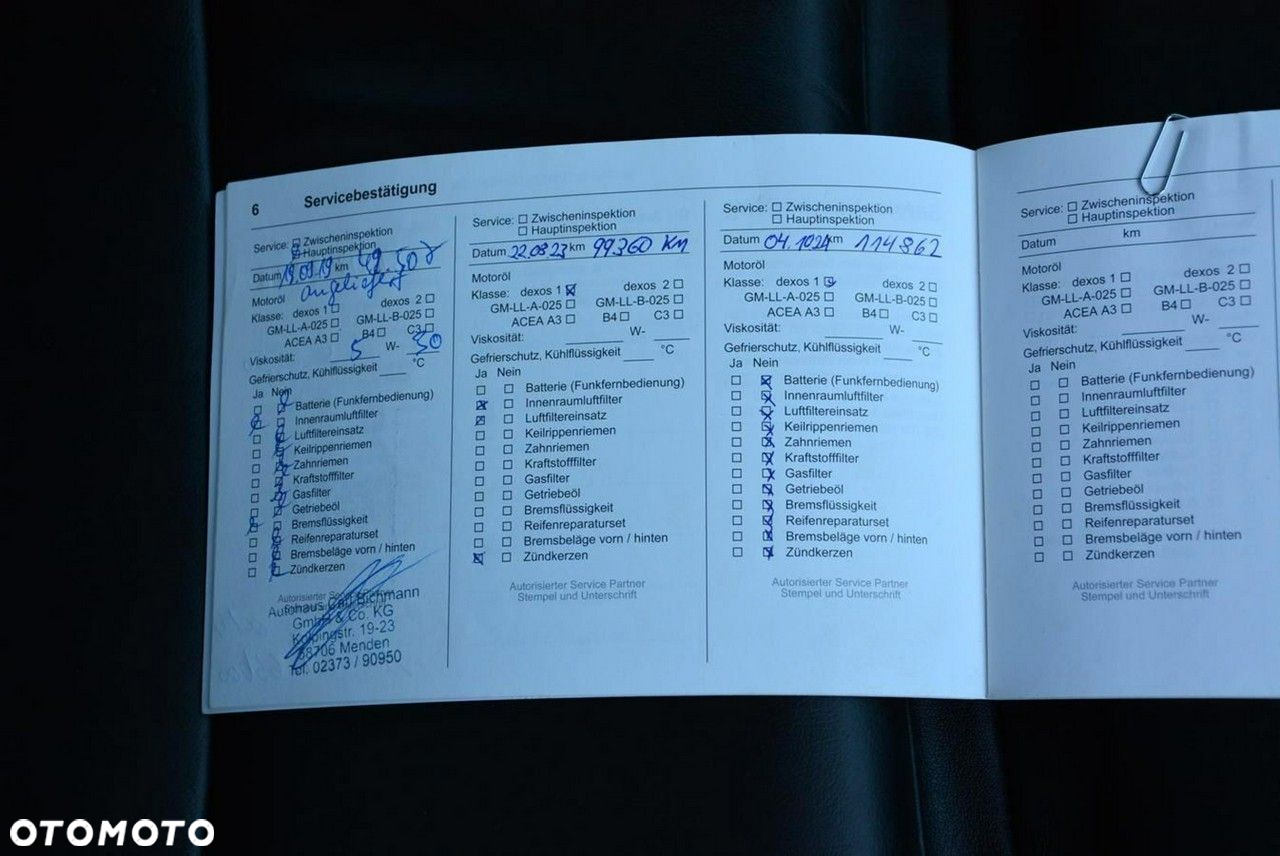 6 Servicebestätigung
Service: Zwischeninspektion
Hauptinspektion
Datum 19.09.19 km 49.507
angeliefert
Motoröl
Klasse: dexos 1 dexos 2
GM-LL-A-025 GM-LL-B-025
ACEA A3 B4 C3
Viskosität: 5 W- 30
Gefrierschutz, Kühlflüssigkeit °C
Ja Nein
Batterie (Funkfernbedienung)
Innenraumluftfilter
Luftfiltereinsatz
Keilrippenriemen
Zahnriemen
Kraftstofffilter
Gasfilter
Getriebeöl
Bremsflüssigkeit
Reifenreparaturset
Bremsbeläge vorn / hinten
Zündkerzen
Autorisierter
Autohaus Carl Bichmann
GmbH & Co. KG
Kolpingstr. 19-23
58706 Menden
Tel. 02373 / 90950
Service: Zwischeninspektion
Hauptinspektion
Datum 22.08.23 km 99360 KM
Motoröl
Klasse: dexos 1 dexos 2
GM-LL-A-025 GM-LL-B-025
ACEA A3 B4 C3
Viskosität: W-
Gefrierschutz, Kühlflüssigkeit °C
Ja Nein
Batterie (Funkfernbedienung)
Innenraumluftfilter
Luftfiltereinsatz
Keilrippenriemen
Zahnriemen
Kraftstofffilter
Gasfilter
Getriebeöl
Bremsflüssigkeit
Reifenreparaturset
Bremsbeläge vorn / hinten
Zündkerzen
Autorisierter Service Partner
Stempel und Unterschrift
Service: Zwischeninspektion
Hauptinspektion
Datum 04.1024 km 114862
Motoröl
Klasse: dexos 1 dexos 2
GM-LL-A-025 GM-LL-B-025
ACEA A3 B4 C3
Viskosität: W-
Gefrierschutz, Kühlflüssigkeit °C
Ja Nein
Batterie (Funkfernbedienung)
Innenraumluftfilter
Luftfiltereinsatz
Keilrippenriemen
Zahnriemen
Kraftstofffilter
Gasfilter
Getriebeöl
Bremsflüssigkeit
Reifenreparaturset
Bremsbeläge vorn / hinten
Zündkerzen
Autorisierter Service Partner
Stempel und Unterschrift
Service: Zwischeninspektion
Hauptinspektion
Datum km
Motoröl
Klasse: dexos 1 dexos 2
GM-LL-A-025 GM-LL-B-025
ACEA A3 B4 C3
Viskosität: W-
Gefrierschutz, Kühlflüssigkeit °C
Ja Nein
Batterie (Funkfernbedienung)
Innenraumluftfilter
Luftfiltereinsatz
Keilrippenriemen
Zahnriemen
Kraftstofffilter
Gasfilter
Getriebeöl
Bremsflüssigkeit
Reifenreparaturset
Bremsbeläge vorn / hinten
Zündkerzen
Autorisierter Service Partner
Stempel und Unterschrift
OTOMOTO